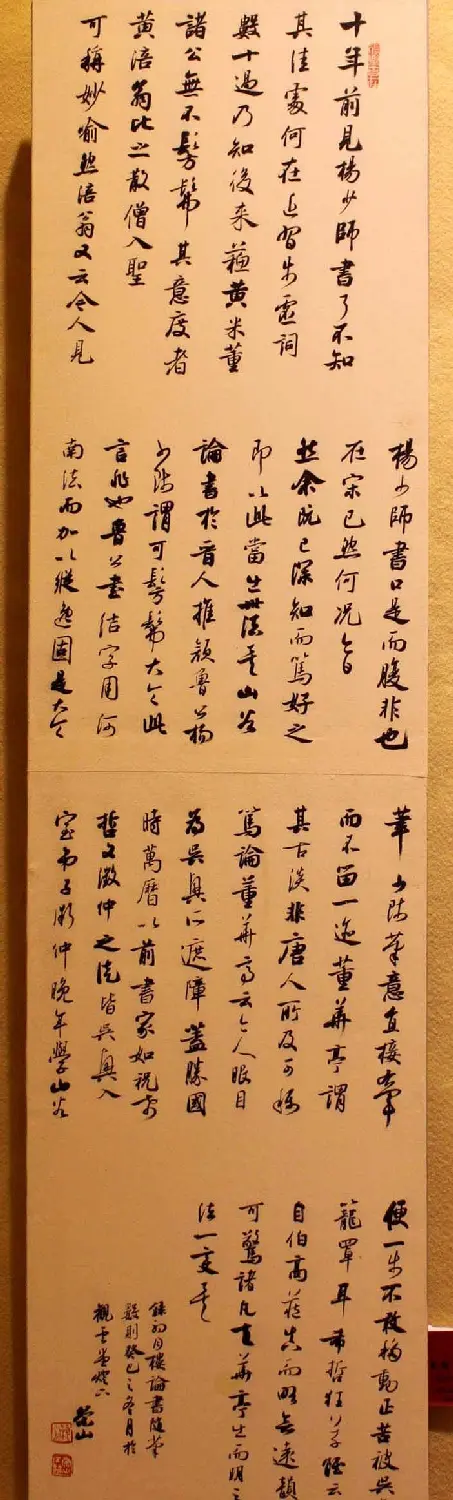 十年前見楊少師書了不知
其佳處何在近習步虛詞
數十過乃知後來蘓黃米董
諸公無不髣髴其意度者
黃涪翁比之散僧入聖
可稱妙喻然涪翁又云今人見
楊少師書口是而腹非也
在宋已然何況今日
然余既已深知而篤好之
即以此當出世法矣山谷
論書於晉人推顏魯公楊
少師謂可髣髴大令此
言非也魯公書結字用河
南法而加以縱逸固是大令
筆少師筆意直接右軍
而不留一迹董華亭謂
其古淡非唐人所及可稱
篤論董華亭云今人眼目
為吳興所遮障蓋勝國
時萬曆以前書家如祝希
哲文徵仲之徒皆吳興入
室弟子徵仲晚年學山谷
便一步不敢移動正苦被吳
籠罩耳希哲狂草雖云
自伯高藏真而略無遠韻
可驚諸凡矣華亭出而明之
法一變矣
錄初月樓論書隨筆
數則癸巳之冬月於
觀雲堂燈下